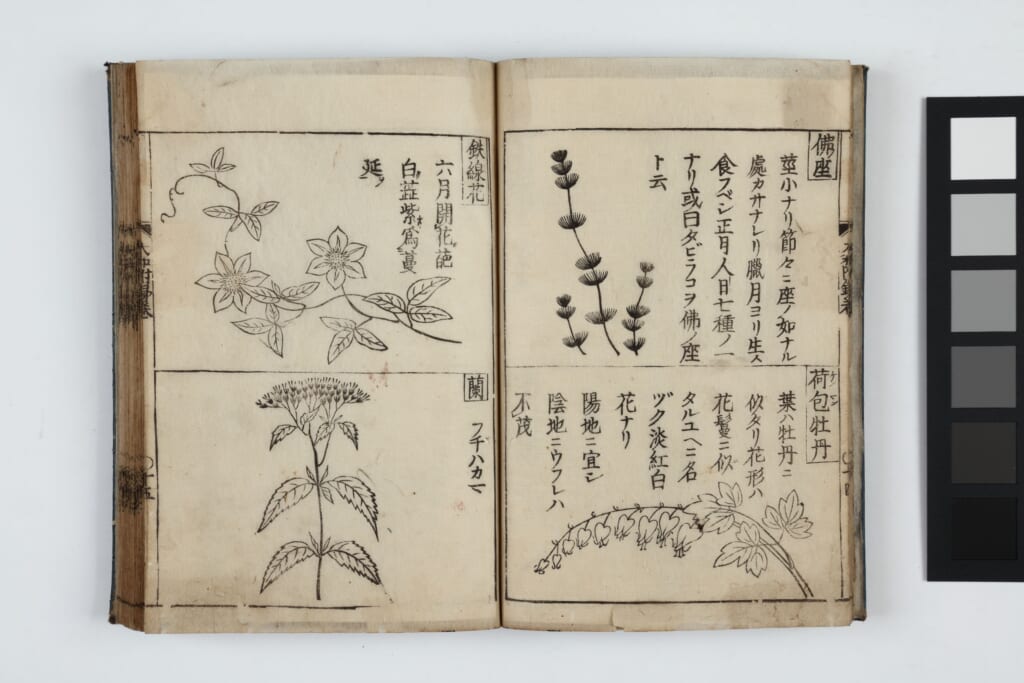 佛座
莖小ナリ節々ニ座ノ如ナル
處カサナレリ臘月ヨリ生ス
食フベシ正月人日七種ノ一
ナリ或曰タビラコヲ佛ノ座
ト云
荷包牡丹
ケマン
葉ハ牡丹ニ
似タリ花形ハ
花鬘ニ似
タルユヘニ名
ヅク淡紅白
花ナリ
陽地ニ宜シ
陰地ニウフレハ
不茂
鉄線花
六月開花葩
白蕋紫為蔓
延
蘭
フヂハカマ